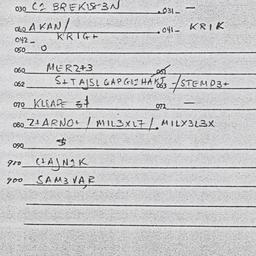 030 C2 BREKISF3N .031. —
040 AKAN/ .041- KRIK
042- KRIG+
050 O
060 MERZ+3 051
062 S+TAJSLGAPGIJHAKJ 063 -/STEMD3+
070 KLSAPE $1 072 —
080 Z+ARNO+/MIL3XL7/.MILX3L3X
090 $
910 C+AJN2K
900 SAM3VAR